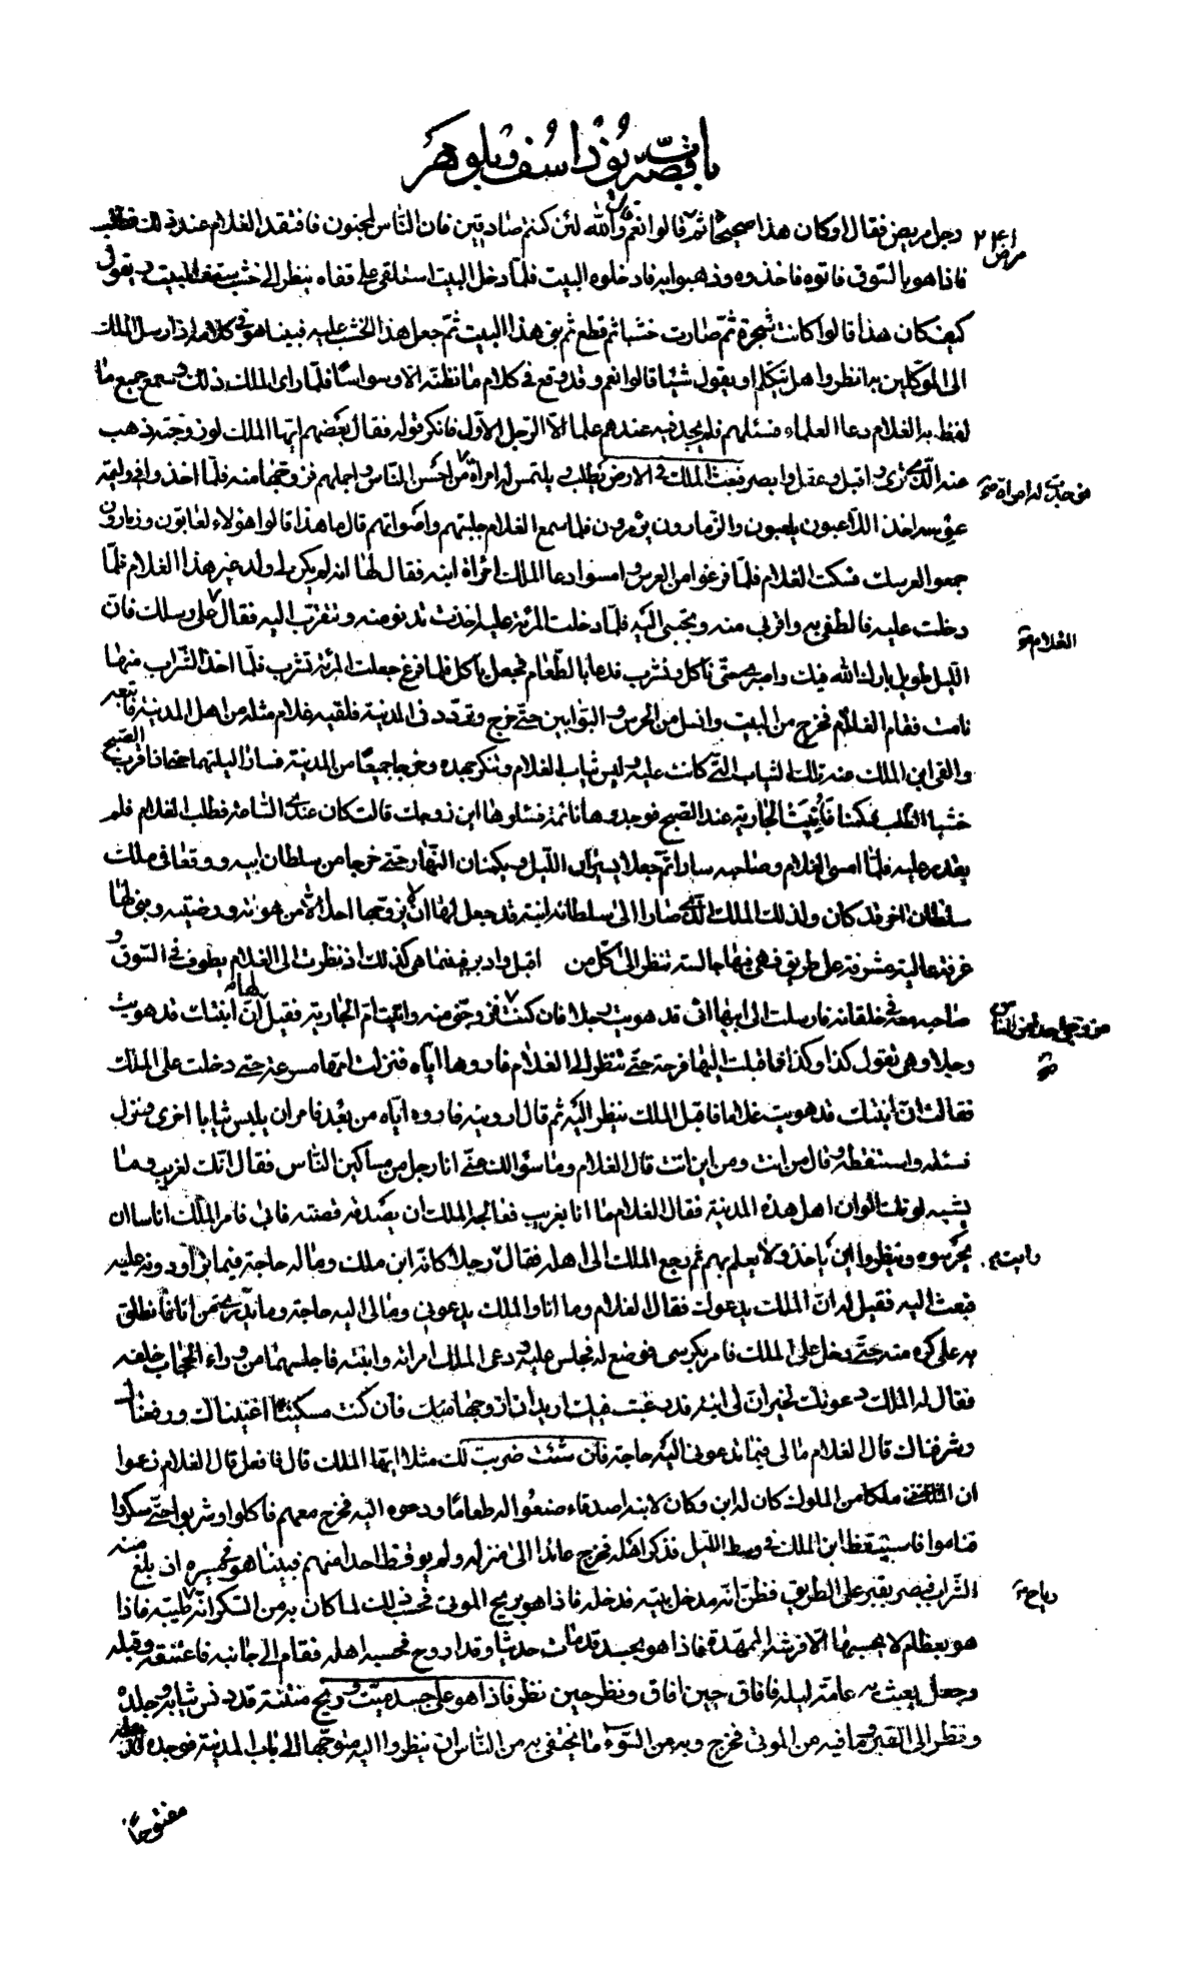 باب قصّة بوذاسف وبلوهر
رجل مريض فقال اوكان هذا صحيحًا ثم مرض قالوا نعم قال والله لئن كنتم صادقين فان النّاس لمجنون فافتقد الغلام عند ذلك فطلب
فاذا هو بالسّوق فاتوه فاخذوه وذهبوا به فادخلوه البيت فلمّا دخل البيت استلقى على قفاه ينظر الى خشب سقف البيت ويقول
كيف كان هذا قالوا كانت شجرة ثمّ صارت خشبا ثم قطع ثم بنى هذا البيت ثمّ جعل هذا الخشب عليه فبينا هو فى كلامه اذ ارسل الملك
الى الموكّلين به انظروا هل يتكلم او يقول شيئا قالوا نعم وقد وقع فى كلام ما نظنّه الا وسواسًا فلمّا راى الملك ذلك وسمع جميع ما
لفظ به الغلام دعا العلماء فسئلهم فلم يجد فيه عندهم علما الّا الرّجل الاوّل فانكر قوله فقال بعضهم ايّها الملك لو زوجته ذهب
عنه الّذى ترى واقبل وعقل وابصر فبعث الملك فى الارض يطلب ويلتمس له امراة من احسن النّاس واجملهم فزوجها منه فلمّا اخذوا فى وليمة
عرسه اخذ اللّاعبون يلعبون والزّمارون يزمرون فلما سمع الغلام جلبتهم واصواتهم قال ما هذا قالوا هؤلاء لعّابون وزمارون
جمعوا لعرسك فسكت الغلام فلمّا فرغوا من العرس وامسوا دعا الملك امراة ابنه فقال لها انه لم يكن لى ولد غير هذا الغلام فلمّا
دخلت عليه فالطفى به واقربى منه وتحبّبى اليه فلمّا دخلت المرئة عليه اخذت تدنو منه وتتقرّب اليه فقال على رسلك فان
اللّيل طويل بارك الله فيك واصبرى حتّى ناكل ونشرب فدعا بالطّعام فجعل ياكل فلما فرغ جعلت المرئة تشرب فلمّا اخذ الشّراب منها
نامت فقام الغلام فخرج من البيت وانسل من الحرس والبوّابين حتّى خرج وتردّد فى المدينة فلقيه غلام مثله من اهل المدينة فاتّبعه
والقى ابن الملك عنه تلك الثياب التّى كانت عليه ولبس ثياب الغلام وتنكر جهده وخرجا جميعًا من المدينة فسارا ليلتهما حتى اذا قرب الصّبح
خشيا الطّلب فكمنا فاتيت الجارية عند الصّبح فوجدوها نائمة فسئلوها اين زوجك قالت كان عندى السّاعة فطلب الغلام فلم
يقدر عليه فلمّا امسى الغلام وصاحبه سارا ثم جعلا يسيران اللّيل ويكمنان النّهار حتّى خرجا من سلطان ابيه ووقعا فى ملك
سلطان اخر وقد كان لذلك الملك الّذى صارا الى سلطانه ابنة قد جعل لها ان لا يزوجها احدا الّا من هويته ورضيته وبنى لها
غرفة عالية مشرفة على طريق فهى فيها جالسة تنظر الى كل من اقبل وادبر فبينما هى كذلك اذ نظرت الى الغلام يطوف فى السّوق و
صاحبه معه فى خلقانه فارسلت الى ابيها انى قد هويت رجلا فان كنت مزوجى احدا من النّاس فزوجنى منه واتيت امّ الجارية فقيل لها انّ ابنتك قد هويت
رجلا وهى تقول كذا وكذا فاقبلت اليها فرحة حتّى تنظر الى الغلام فاروها ايّاه فنزلت امّها مسرعة حتى دخلت على الملك
فقالت انّ ابنتك قد هويت غلاما فاقبل الملك ينظر اليه ثم قال ارونيه فاروه ايّاه من بُعد فامر ان يلبس ثيابا اخرى ونزل
فسئله واستنطقه وقال من انت ومن اين انت قال الغلام وما سؤالك عنّى انا رجل من مساكين النّاس فقال انّك لغريب وما
يشبه لونك الوان اهل هذه المدينة فقال الغلام ما انا بغريب فعالجه الملك ان يصدقه قصته فابى فامر الملك اناسا ان
يحرسوه وينظروا اين ياخذ ولا يعلم بهم ثم رجع الملك الى اهله فقال رايت رجلا كانّه ابن ملك وما له حاجة فيما تراودونه عليه
فبعث اليه فقيل له انّ الملك يدعوك فقال الغلام وما انا والملك يدعونى وما لى اليه حاجة وما يدرى من انا فانطلق
به على كره منه حتّى دخل على الملك فامر بكرسى فوضع له فجلس عليه ودعى الملك امراته وابنته فاجلسهما من وراء الحجاب خلفه
فقال له الملك دعوتك لخير ان لى ابنة قد رغبت فيك اريد ان ازوجها منك فان كنت مسكينًا اغنيناك ورفعناك
وشرفناك قال الغلام ما لى فيما تدعونى اليه حاجة فان شئت ضربت لك مثلا ايها الملك قال فافعل قال الغلام زعموا
ان ملكا من الملوك كان له ابن وكان لابنه اصدقاء صنعوا له طعامًا ودعوه اليه فخرج معهم فاكلوا وشربوا حتّى سكروا
فناموا فاستيقظ ابن الملك فى وسط اللّيل فذكر اهله فخرج عائدا الى منزله ولم يوقظ احدا منهم فبينا هو فى مسيره اذ بلغ منه
الشّراب فبصر بقبر على الطّريق فظنّ انّه مدخل بيته فدخله فاذا هو بريح الموتى فحسب ذلك لما كان به من السّكر انّه رياح طيّبة فاذا
هو بعظام لا يحسبها الّا فرشه الممهّدة فاذا هو بجسد قد مات حديثا وقد اروح فحسبه اهله فقام الى جانبه فاعتنقه وقبله
وجعل يعبث به عامّة ليله فافاق حين افاق ونظر حين نظر فاذا هو على جسد ميّت وريح منتنة قد دنس ثيابه وجلده
ونظر الى القبر وما فيه من الموتى فخرج وبه من السّوء ما يختفى به من النّاس ان ينظروا اليه متوجّها الى باب المدينة فوجده
مفتوحًا
٢٤١
مرض
الغلام
مزوجى احدا من النّاس
رايت
رياح